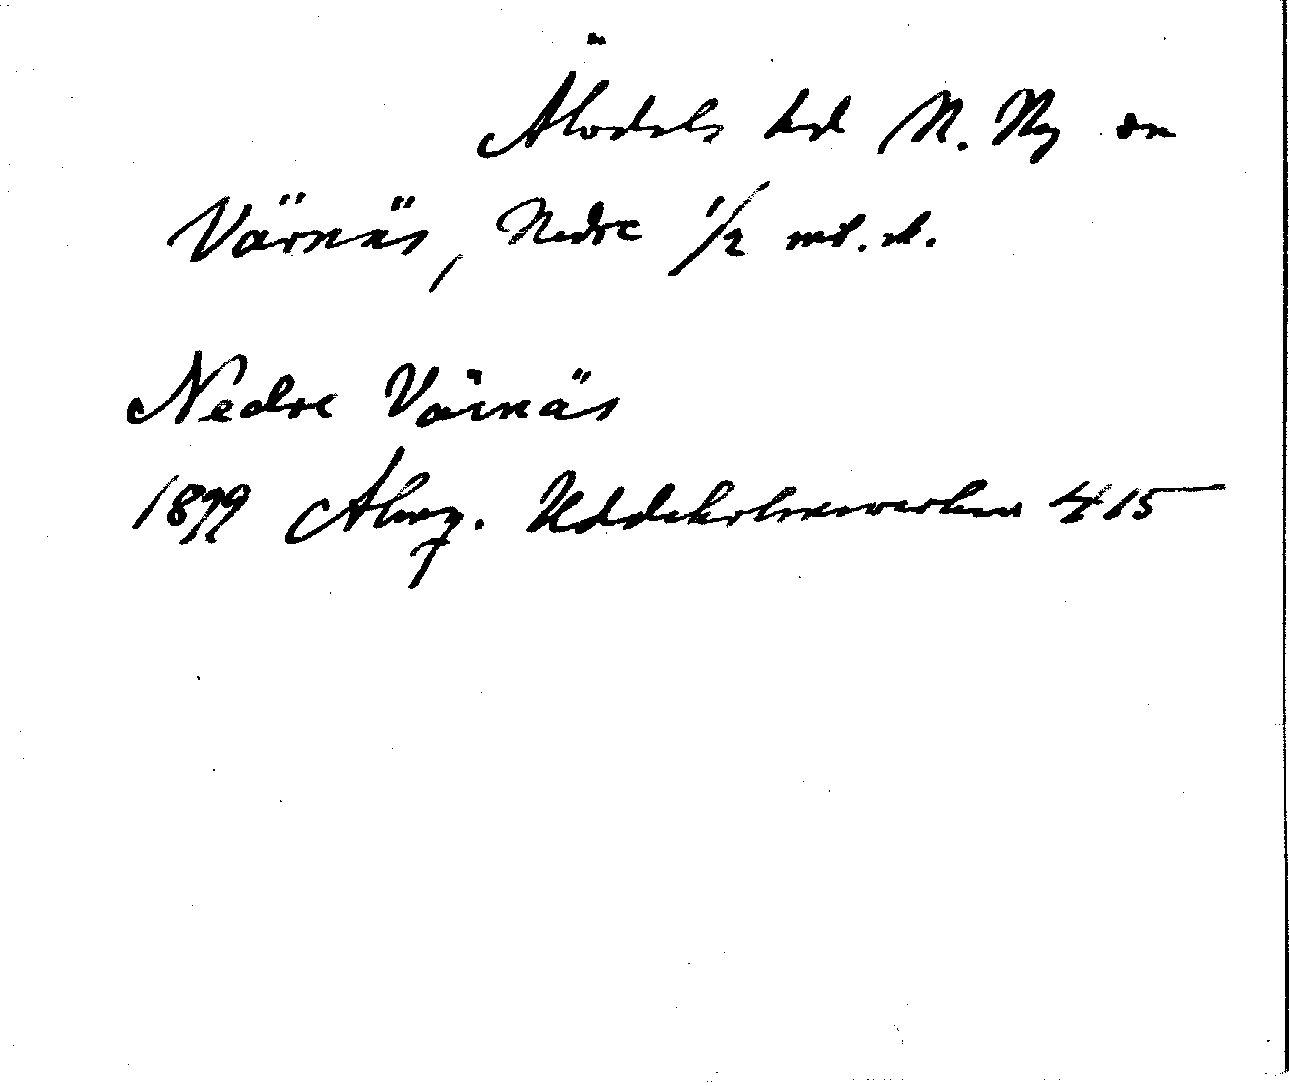 Älvdals hd N. Ny sn
Värnäs, Nedre 1/2 mtl. sk.
Nedre Värnäs
1899 Almq. Uddeholmsverken 415